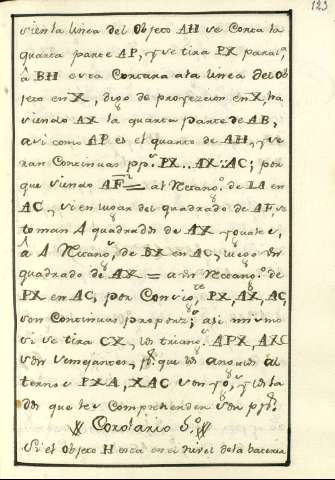 123
si en la linea del Objeto AH se Corta la
quarta parte AP, y se tira PX paral.ª
á BH esta Cortara a la linea del Ob
jeto en X, digo de proyeccion en X, ha
siendo AX la quarta parte de AB,
asi como AP es el quarto de AH, y se
ran Continuas pp.s PX.. AX: AC; por
que siendo AF = al Rectang.o de IA en
AC, si en lugar del quadrado de AF, se
toman 4 quadrados de AX
á 4 Rectang.s de BX en AC, luego el
quadrado de AX = a un Rectang.o de
PX en AC, por PX, AX, AC,
son Continuas proporz.s asi mismo
si se tira CX, los triang.s APX, AXC
son semejantes, p.r que los angulos al
ternos PXA, XAC son y.s, y los la
dos que les Comprehenden son pp.s
Corolario 5.o
Si el Objeto H esta en el nivel de la bateria